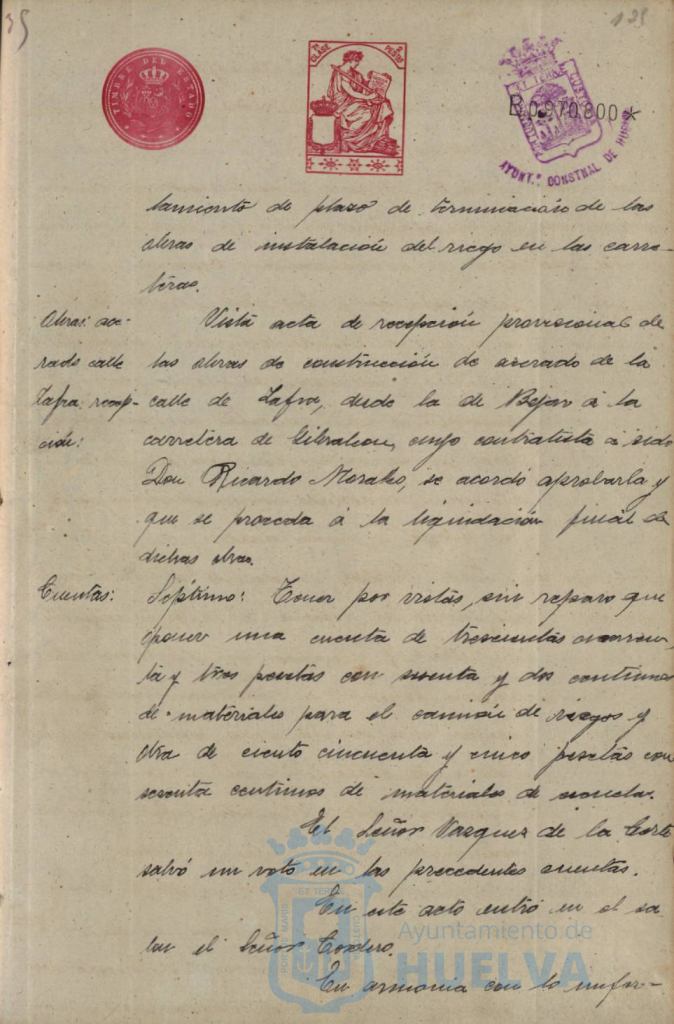 35
125
TIMBRE DEL ESTADO
7ª CLASE
PESETAS
B.0.970.800 *
AYUNT.º CONSTNAL DE HUELVA
tamiento de plazo de terminación de las
obras de instalación del riego en las carre-
teras.
Obras: ace-
rado calle
Zafra: recep-
ción:
Vista acta de recepción provisional de
las obras de construcción de acerado de la
calle de Zafra, desde la de Bejar á la
carretera de Gibraleon, cuyo contratista á sido
Don Ricardo Morales, se acordó aprobarla y
que se proceda á la liquidación final de
dichas obras.
Cuentas:
Séptimo: Tener por vistas, sin reparo que
oponer una cuenta de trescientas cuaren-
ta y tres pesetas con y dos centimos
de materiales para el camión de riegos y
otra de ciento cincuenta y cinco pesetas con
sesenta centimos de materiales de escuela.
El Señor Vazquez de la Corte
salvó su voto en las precedentes cuentas.
En este acto entró en el sa
lon el Señor Cordero.
En armonia con lo infor-
Ayuntamiento de
HUELVA